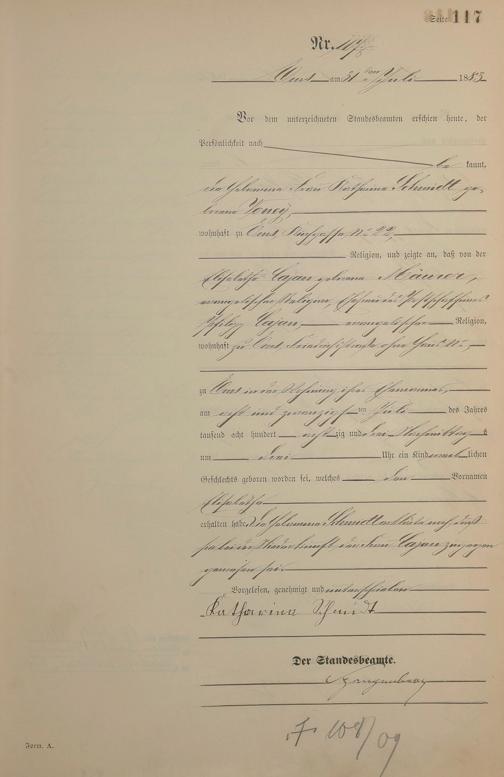 Seite 117
Nr.
Ems am 31 ten Juli 1883
Vor dem unterzeichneten Standesbeamten erschien heute, der
Persönlichkeit nach
be kannt,
die Hebamme Frau Katharina Schmidt ge-
borene
wohnhaft zu Ems Kirchgasse No 22,
Religion, und zeigte an, daß von der
Elisabetha Cajan geborene Maurer,
evangelischer Religion, Ehefrau des
Philipp Cajan, evangelischer Religion,
wohnhaft zu Ems, ohne Haus No,
zu Ems in der Wohnung ihres Ehemannes,
am acht und zwanzigsten Juli des Jahres
tausend acht hundert acht zig und drei Nachmittags
um drei Uhr ein Kind lichen
Geschlechts geboren worden sei, welches den Vornamen
Elisabetha
erhalten habe. Die Hebamme Schmidt erklärte noch, daß
sie bei der Niederkunft der Frau Cajan zugegen
gewesen sei.
Vorgelesen, genehmigt und unterschrieben
Katharina Schmidt
Der Standesbeamte.
Form. A.